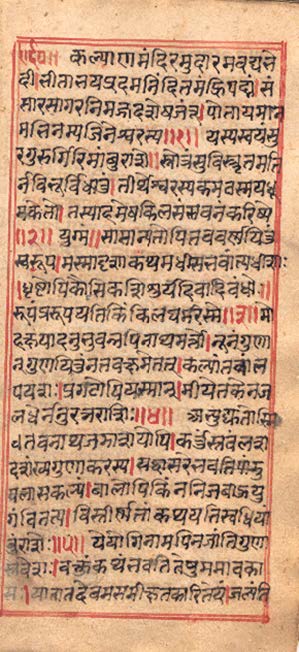 कल्याणमंदिरमुदारमवद्यभे
दी।भीताभयप्रदमनिंदितमंह्रिपद्मं।सं
सारसागरनिमज्जदशेषजंतु।पोतायमान
मभिनम्यजिनेश्वरस्य॥१॥यस्यस्वयंसुर
गुरुर्गरिमांबुराशेः।स्तोत्रंसुविस्तृतमति
र्नविभुर्विधातुं।तीर्थेश्वरस्यकमठस्मयधू
मकेतो।तस्याहमेषकिलसंस्तवनंकरिष्ये
॥२॥युग्मं॥सामान्यतोपितववर्णयितुं
स्वरूप।मस्मादृशाःकथमधीशभवंत्यधीशाः।
धृष्टोपिकौशिकशिशुर्यदिवादिवांधो।
रूपंप्ररूपयतिकिंकिलघर्मरश्मेः॥३॥मो
हक्षयादनुभवन्नपिनाथमर्त्यो।नूनंगुणा
न्गुणयितुंनतवक्षमेत।कल्पांतवांत
पयशः।प्रगटोपियस्मान्।मीयेतकेनज
लधेर्ननुरत्नराशिः॥४॥अभ्युद्यतोस्मि
तवनाथजडाशयोपि।कर्तुंस्तवंलस
दसंख्यगुणाकरस्य।
बालोपिकिंननिजबाहुयु
गंवितत्य।विस्तीर्णतांकथयतिस्वधिया
बुराशेः॥५॥येयोगिनामपिनयांतिगुणा
स्तवेश।वक्तुंकथंभवतितेषुममावका
शः।जातातदेवमसमीक्षितकारितेयं।जल्पंति